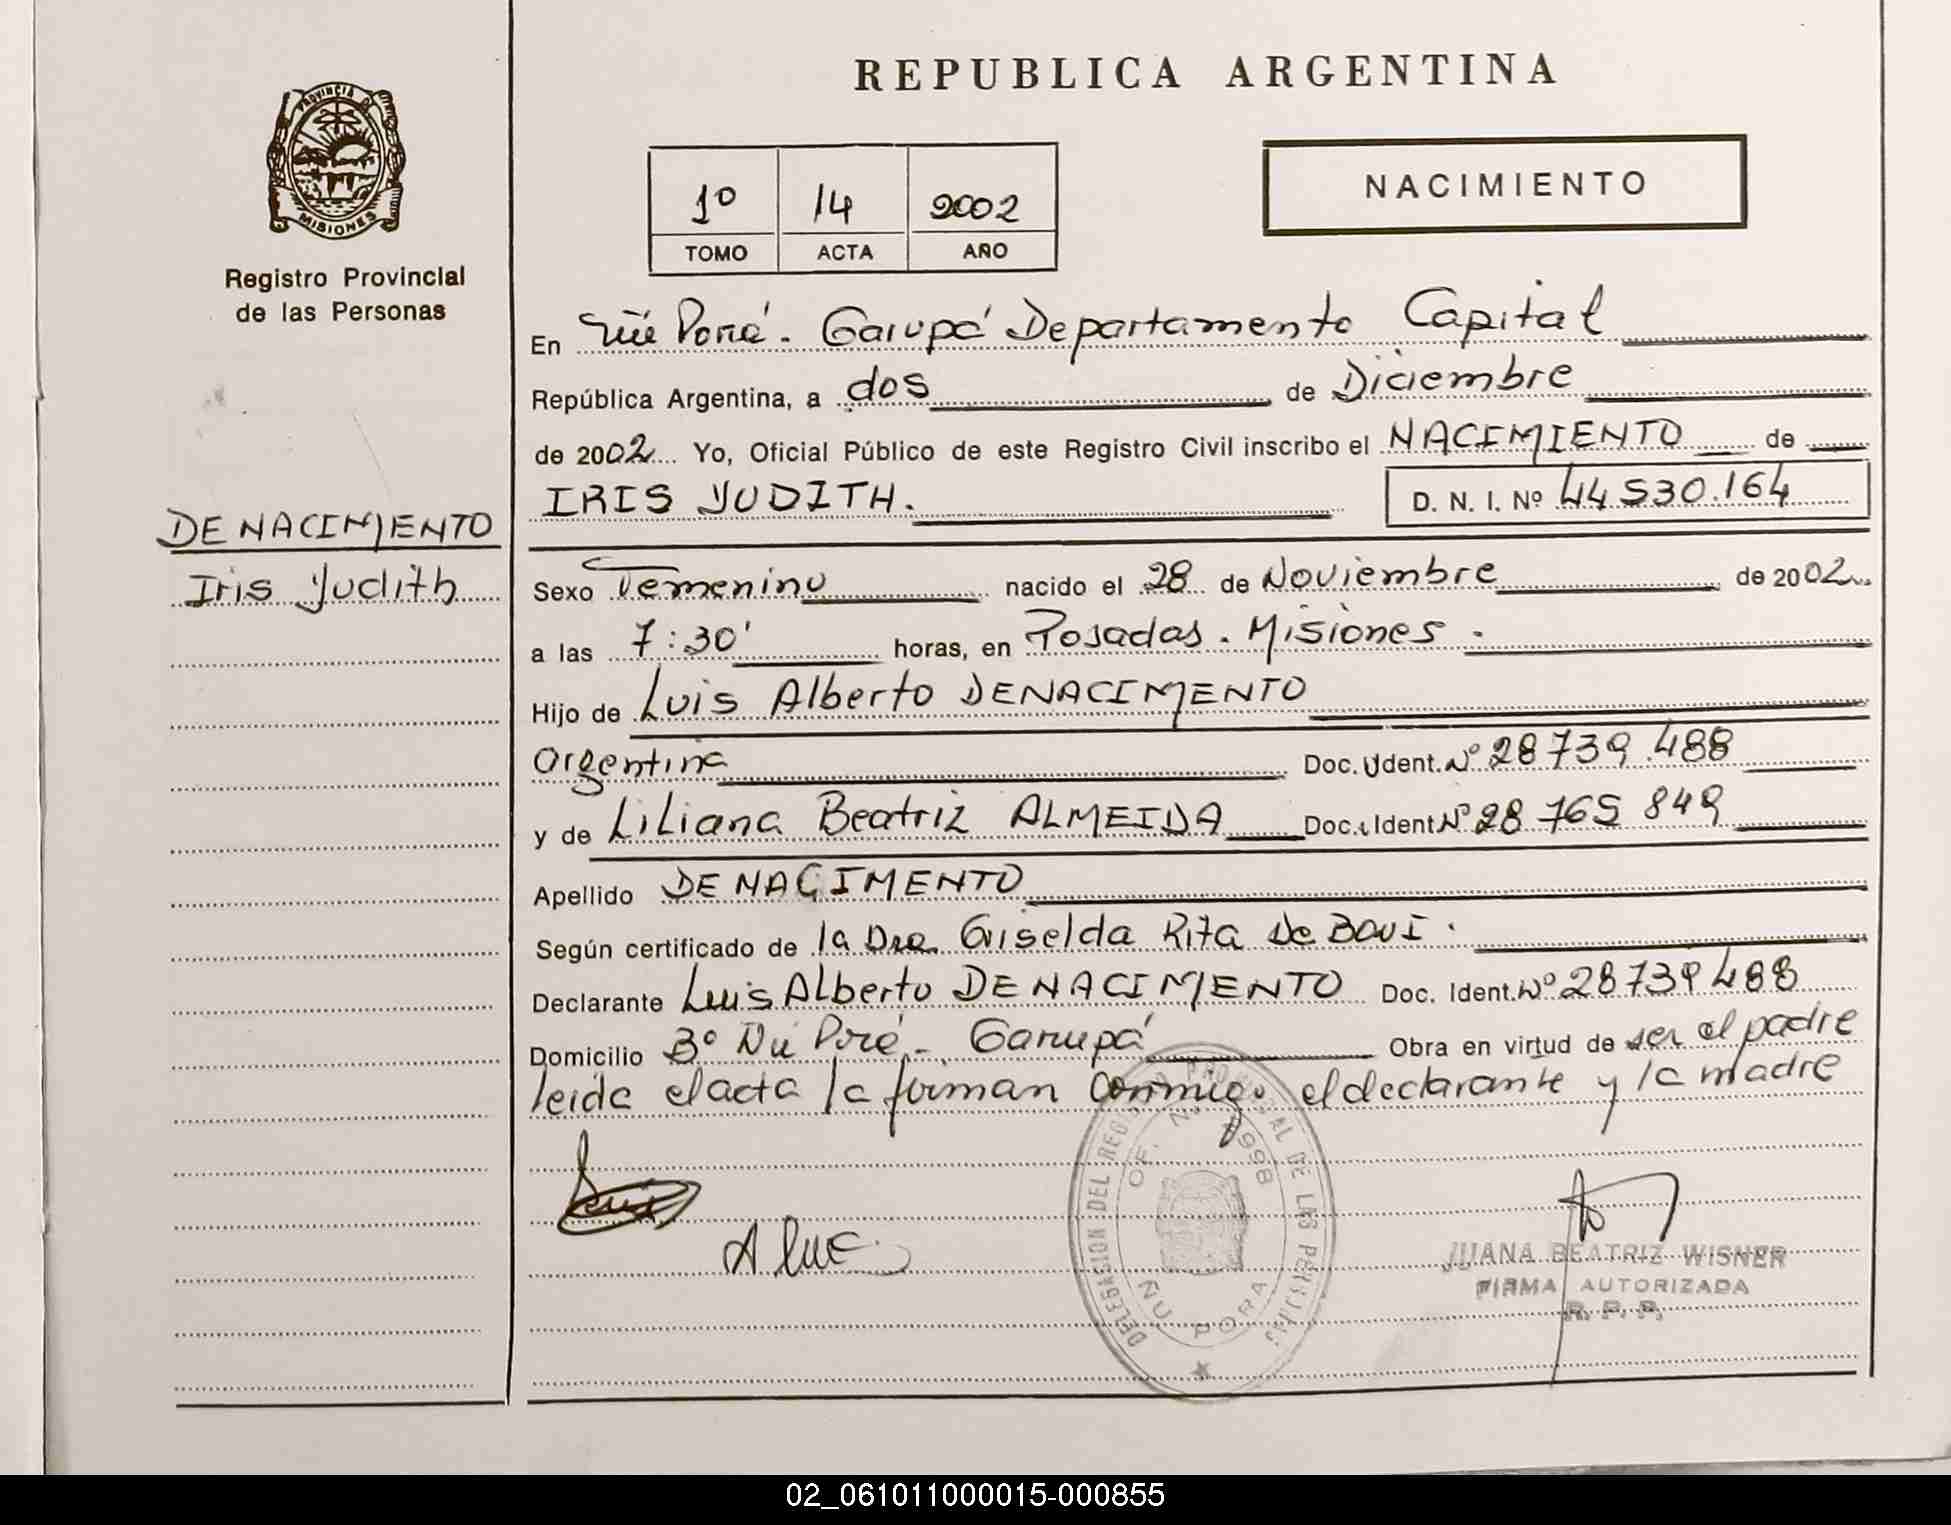 REPUBLICA ARGENTINA
PROVINCIA DE
MISIONES
Registro Provincial
de las Personas
1º 14 2002
TOMO ACTA AÑO
NACIMIENTO
En Ñu Porá. Garupá Departamento Capital
República Argentina, a dos de Diciembre
de 2002 Yo, Oficial Público de este Registro Civil inscribo el NACIMIENTO de
IRIS YUDITH. D. N. I. Nº 44.530.164
DENACIMIENTO
Iris Yudith
Sexo Femenino nacido el 28 de Noviembre de 2002
a las 7:30' horas, en Posadas. Misiones.
Hijo de Luis Alberto DENACIMIENTO
Argentina Doc. Ident. Nº 28739.488
y de Liliana Beatriz ALMEIDA Doc. Ident Nº 28 765 849
Apellido DENACIMENTO
Según certificado de la Dra. Griselda Rita De
Declarante Luis Alberto DENACIMIENTO Doc. Ident. Nº 28739488
Domicilio Bº Ñu Poré - Garupá Obra en virtud de ser el padre
leida el acta la firman conmigo el declarante y la madre
DELEGACION DEL REGISTRO PROVINCIAL DE LAS PERSONAS
OF. N. 4998
ÑU PORA
JUANA BEATRIZ WISNER
FIRMA AUTORIZADA
R. P. P.
02_061011000015-000855